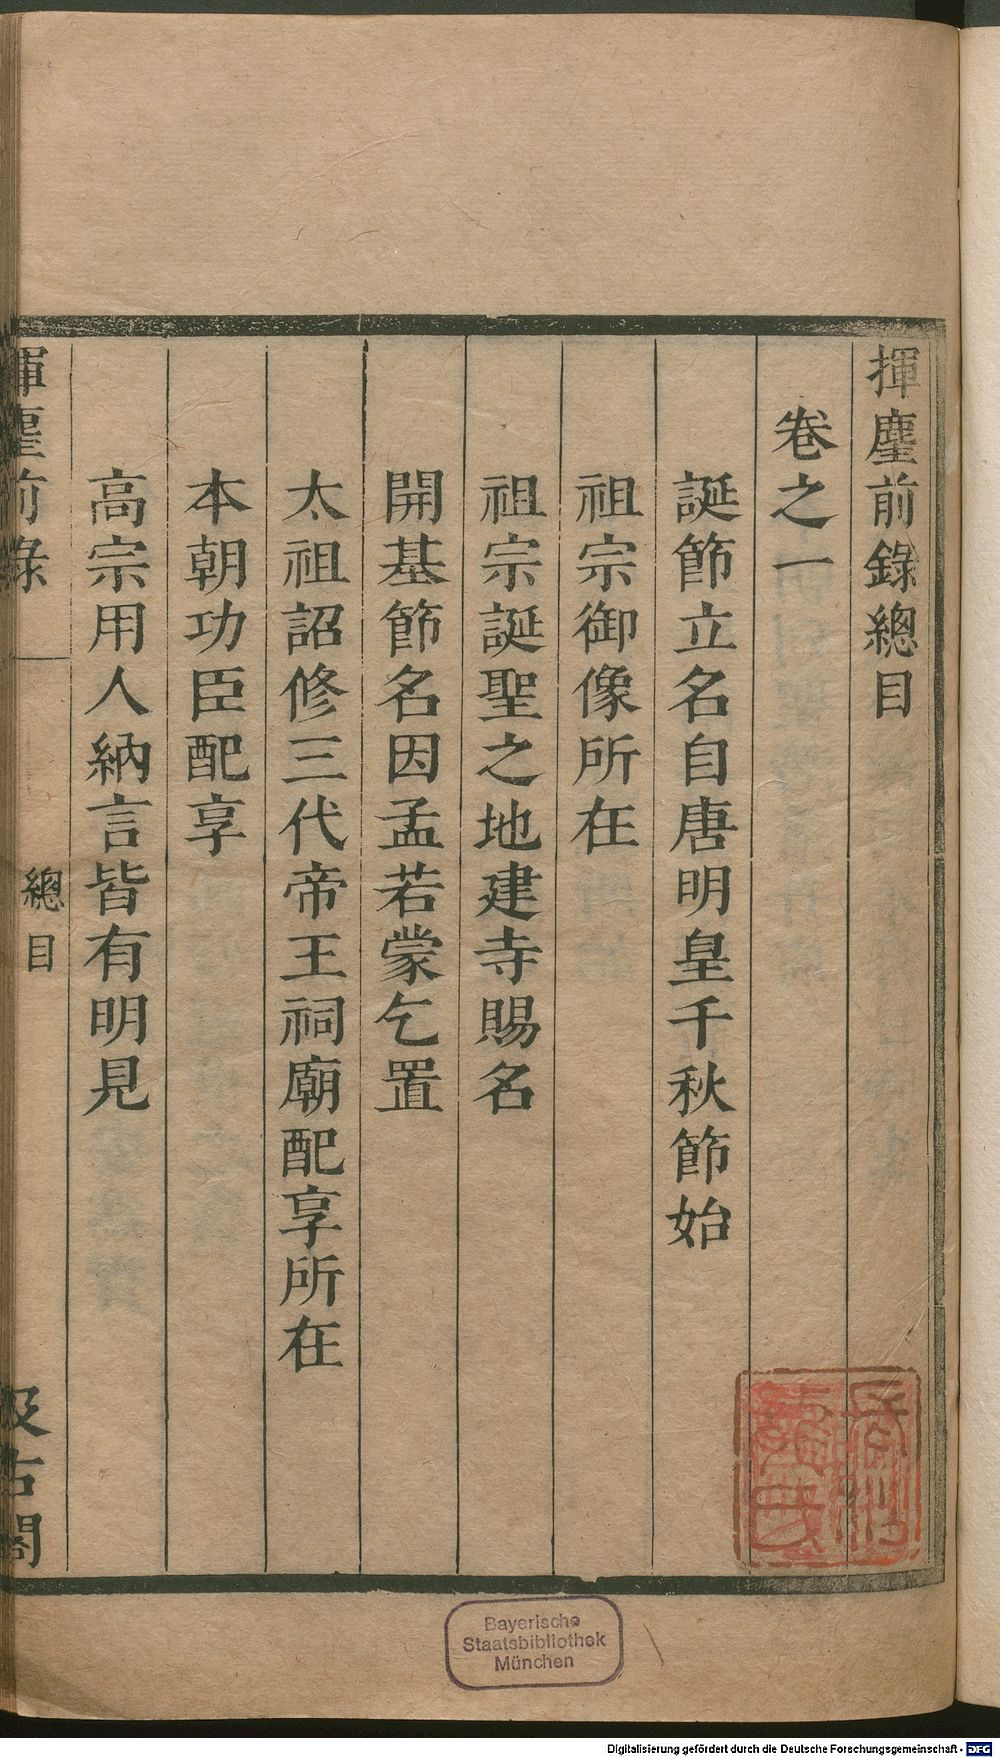 揮麈前錄總目
卷之一
誕節立名自唐明皇千秋節始
祖宗御像所在
祖宗誕聖之地建寺賜名
開基節名因孟若蒙乞置
太祖詔修三代帝王祠廟配享所在
本朝功臣配享
高宗用人納言皆有明見
揮麈前錄
總目
汲古閣
Bayerische
Staatsbibliothek
München
Digitalisierung gefördert durch die Deutsche Forschungsgemeinschaft - DFG